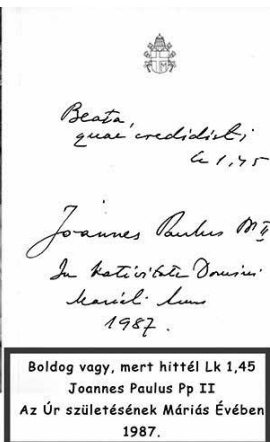 Beata,
quae credidisti
Lc 1,45
Joannes Paulus PP II
In Nativitate Domini
Mariali Anno
1987.
Boldog vagy, mert hittél Lk 1,45
Joannes Paulus Pp II
Az Úr születésének Máriás Évében
1987.